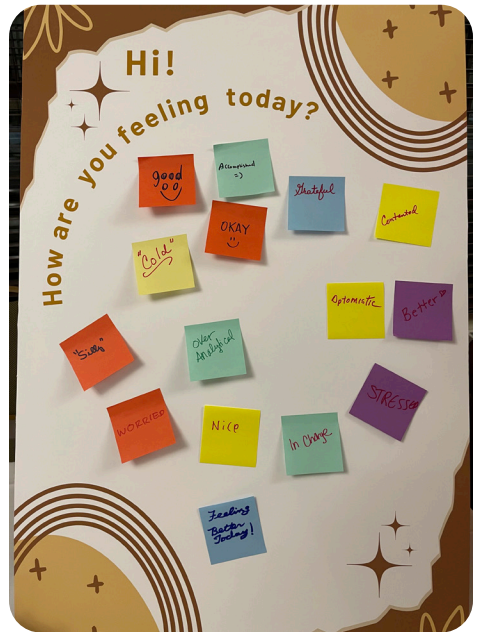 Hi!
How are you feeling today?
good
Accomplished
=)
Grateful
Contented
OKAY
"Cold"
Optomistic
Better
"Silly"
Over
Analytical
STRESSED
WORRIED
Nice
In Charge
Feeling
Better
Today!